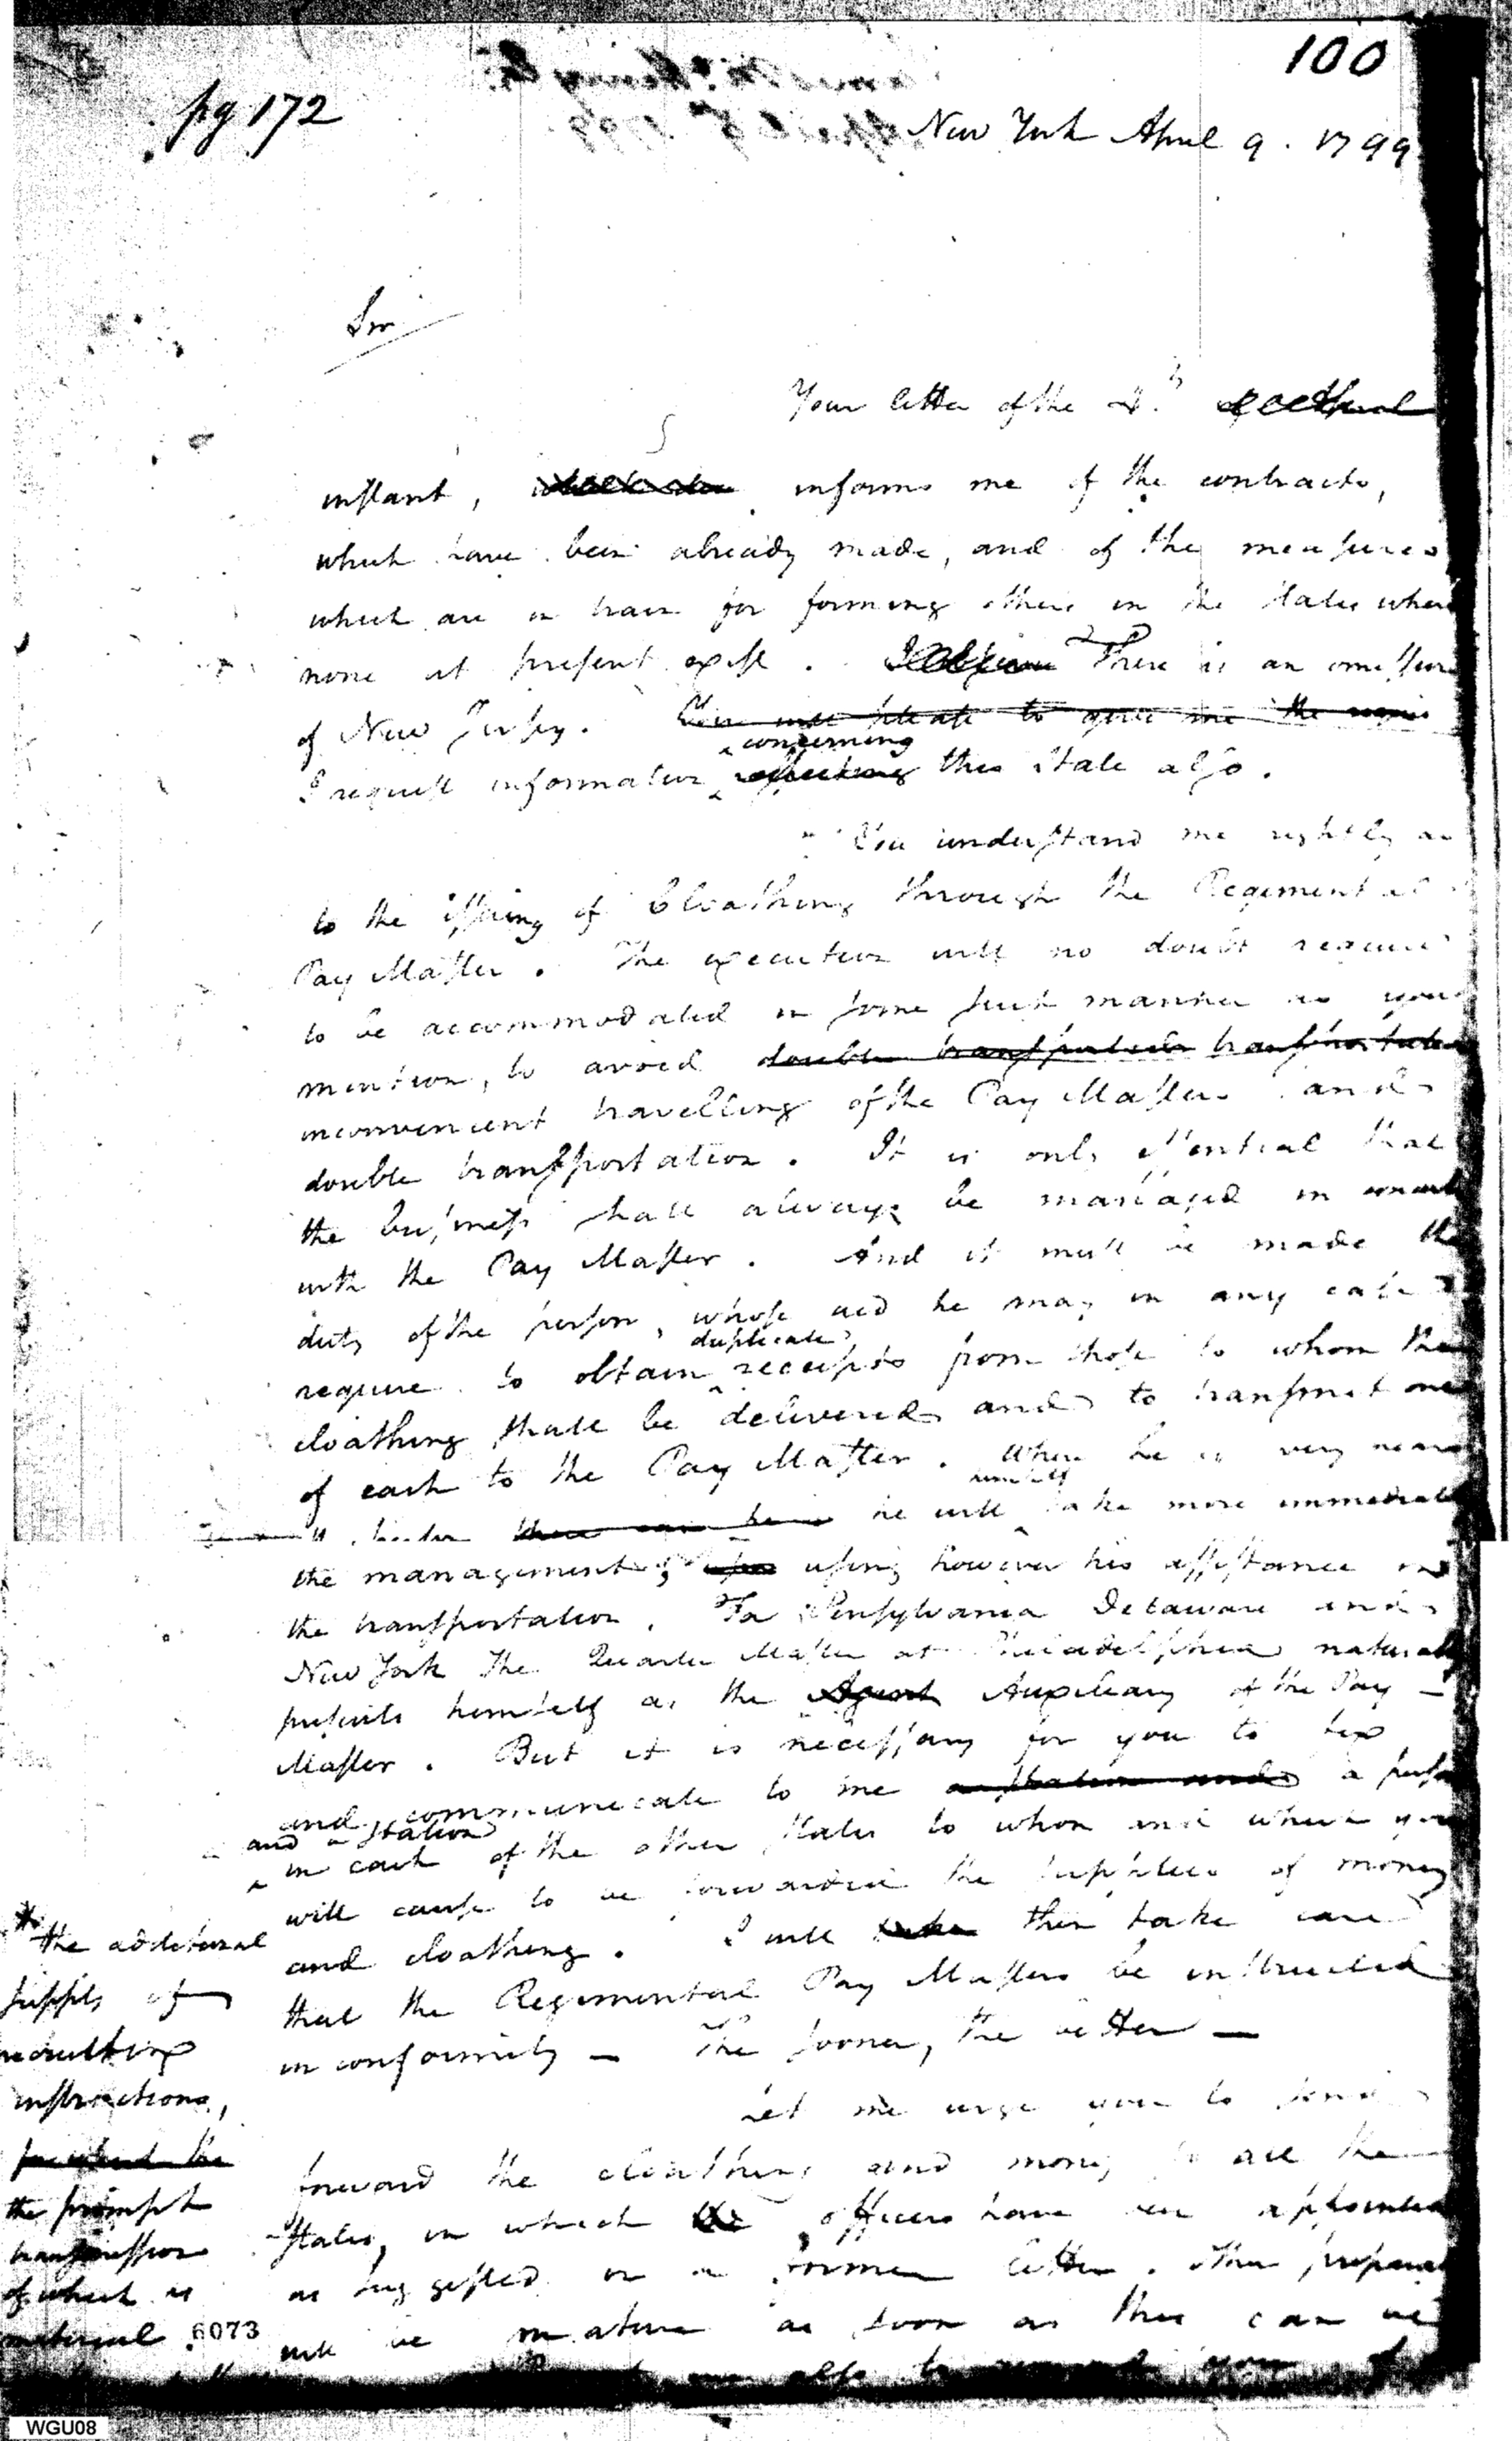 100
pg 172
New York April 9. 1799
Sir
Your letter of the 4th
instant, informs me of the contracts,
which have been already made, and of the measures
which are in train for forming others in the states where
none at present exist. There is an omission
of New Jersey. You will please to give me the
concerning
I request information this state also.
You understand me rightly as
to the issuing of Cloathing through the Regimental
Pay Master. The execution will no doubt require
to be accommodated in some such manner as you
mention, to avoid double transportation transportation
inconvenient travelling of the Pay Masters and
double transportation. It is only essential that
the business shall always be managed in
with the Pay Master. And it must be made the
duty of the person, whose aid he may in any case
duplicate
require to obtain receipts from those to whom the
cloathing shall be delivered and to transmit one
of each to the Pay Master. When he is very near
himself
he will take more immediate
the management; using however his assistance in
the transportation. For Pensylvania Delaware and
New York The Quarter Master at Philadelphia naturally
presents himself as the Agent Auxiliary of the Pay-
Master. But it is necessary for you to fix
and communicate to me a station and a person
and a station
in each of the other states to whom and which you
will cause to be forwarded the supplies of money
and cloathing. I will take then take care
that the Regimental Pay Masters be instructed
in conformity — The sooner, the better —
Let me urge you to send
forward the cloathing and money to all the
states, in which the officers have been appointed
as suggested in a former letter. Other
will be mature as soon as this can be
also to you of
* the additional
supply of
recruiting
instructions,
for which the
the prompt
transmission
of which is
material.
6073
WGU08